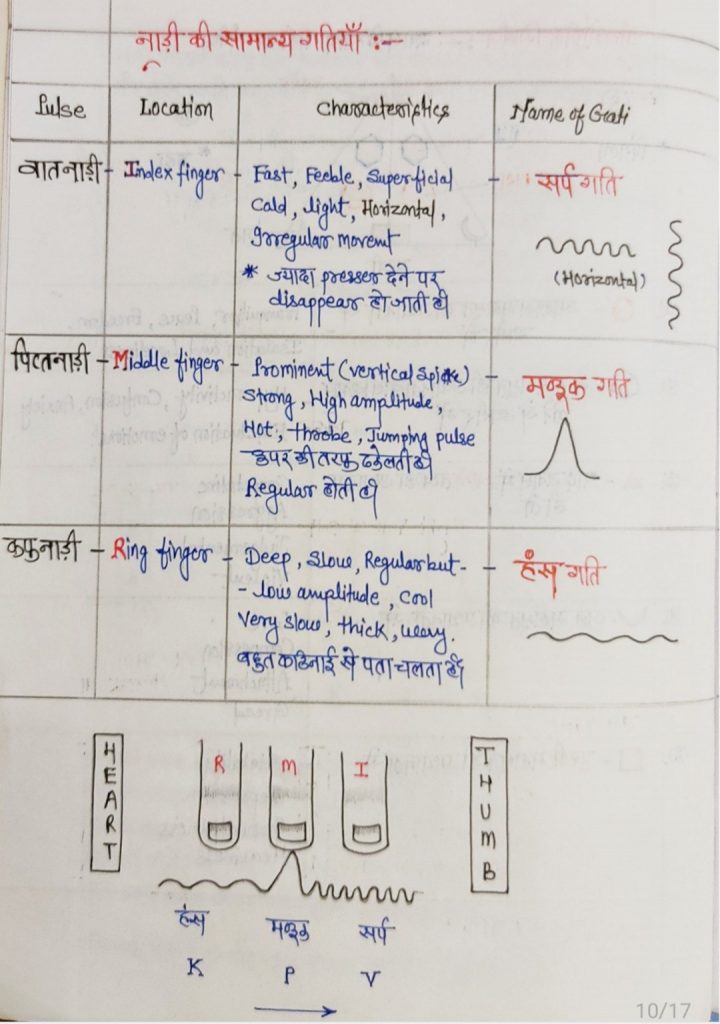 नाड़ी की सामान्य गतियाँ :-
Pulse Location Characteristics Name of Gati
वातनाड़ी - Index finger - Fast, Feeble, Superficial - सर्प गति
Cold, light, Horizontal,
Irregular movent
(Horizontal)
* ज्यादा presser देने पर
disappear हो जाती है।
पित्तनाड़ी - Middle finger - Prominent (vertical spike) - मण्डूक गति
Strong, High amplitude,
Hot, throbe, Jumping pulse
ऊपर की तरफ ढकेलती है।
Regular होती है।
कफनाड़ी - Ring finger - Deep, Slow, Regular but - - हंस गति
- low amplitude, cool
Very slow, thick, wavy.
बहुत कठिनाई से पता चलता है।
HEART R M I THUMB
हंस मण्डूक सर्प
K P V
10/17